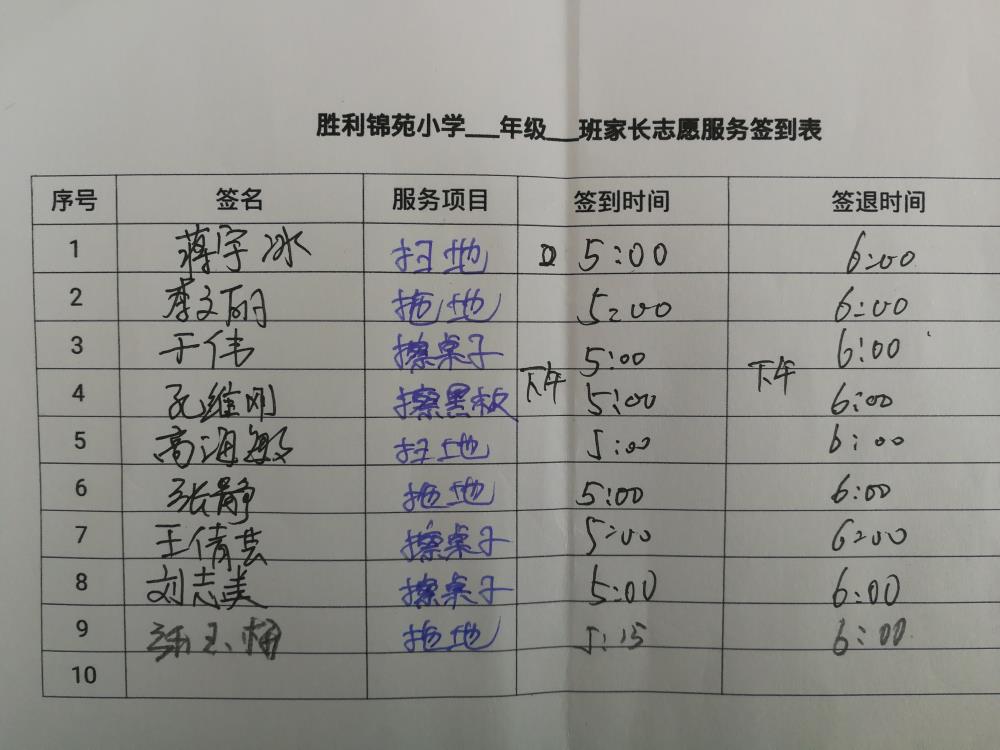 胜利锦苑小学___年级___班家长志愿服务签到表
序号 签名 服务项目 签到时间 签退时间
1 蒋宇冰 扫地 5:00 6:00
2 李文丽 拖地 5:00 6:00
3 于伟 擦桌子 5:00 6:00
下午 下午
4 孔维刚 擦黑板 5:00 6:00
5 高海敏 扫地 5:00 6:00
6 张静 拖地 5:00 6:00
7 王倩芸 擦桌子 5:00 6:00
8 刘志美 擦桌子 5:00 6:00
9 拖地 5:15 6:00
10